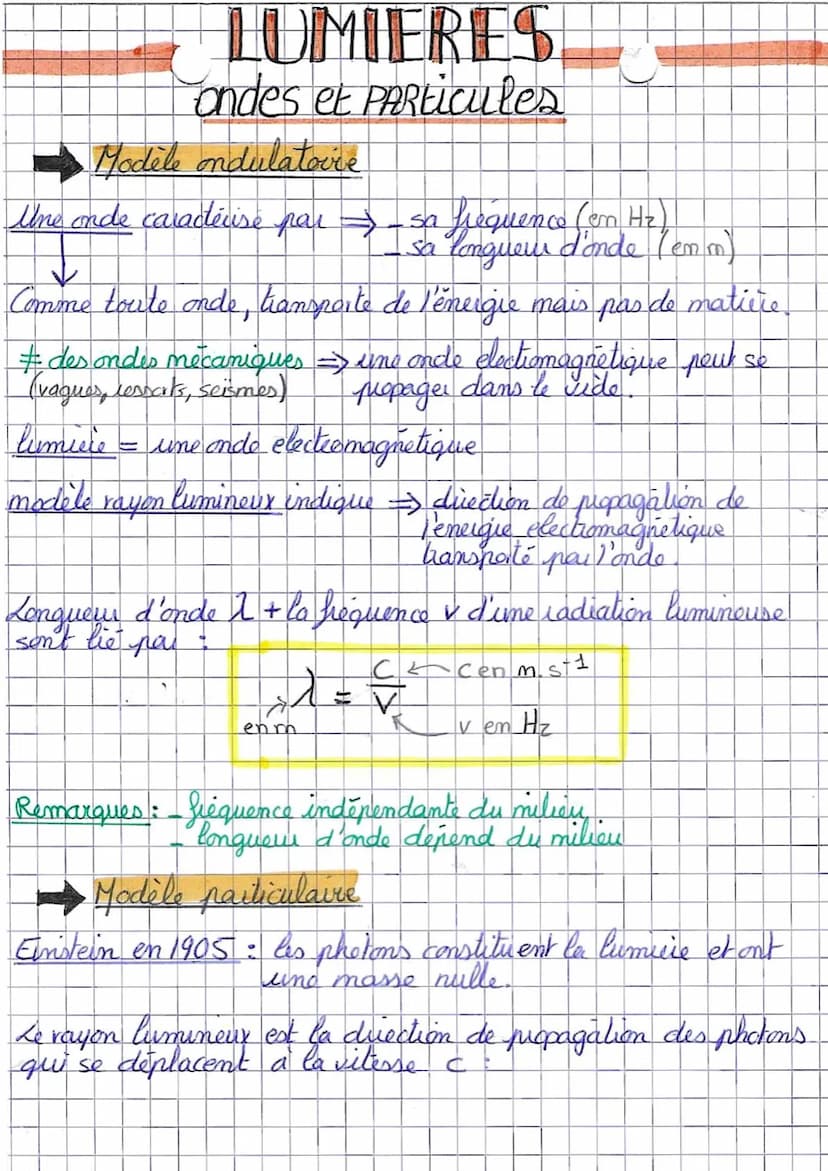 LUMIERES
ondes et PARticules
Modèle ondulatoire
Une onde caractérisé par => - sa fréquence (en Hz)
- sa longueur d'onde (en m)
Comme toute onde, transporte de l'énergie mais pas de matière.
≠ des ondes mécaniques => une onde electromagnétique peut se
(vagues, ressorts, seismes) propager dans le vide.
lumière = une onde electromagnétique
modèle rayon lumineux indique => direction de propagation de
l'énergie electromagnétique
transporté par l'onde.
Longueur d'onde λ + la fréquence v d'une radiation lumineuse
sont lié par :
λ = c/v
c en m.s⁻¹
en m
v en Hz
Remarques : - fréquence indépendante du milieu
- longueur d'onde dépend du milieu
Modèle particulaire
Einstein en 1905 : les photons constituent la lumière et ont
une masse nulle.
Le rayon lumineux est la direction de propagation des photons
qui se déplacent à la vitesse c :